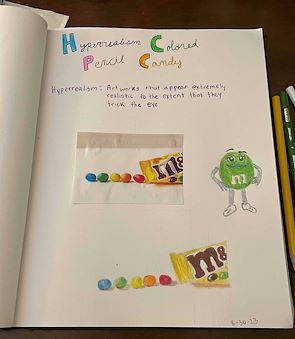 Hyperrealism Colored
Pencil Candy
Hyperrealism: Artworks that appear extremely
realistic to the extent that they
trick the eye
m&
m
m&
8-30-23